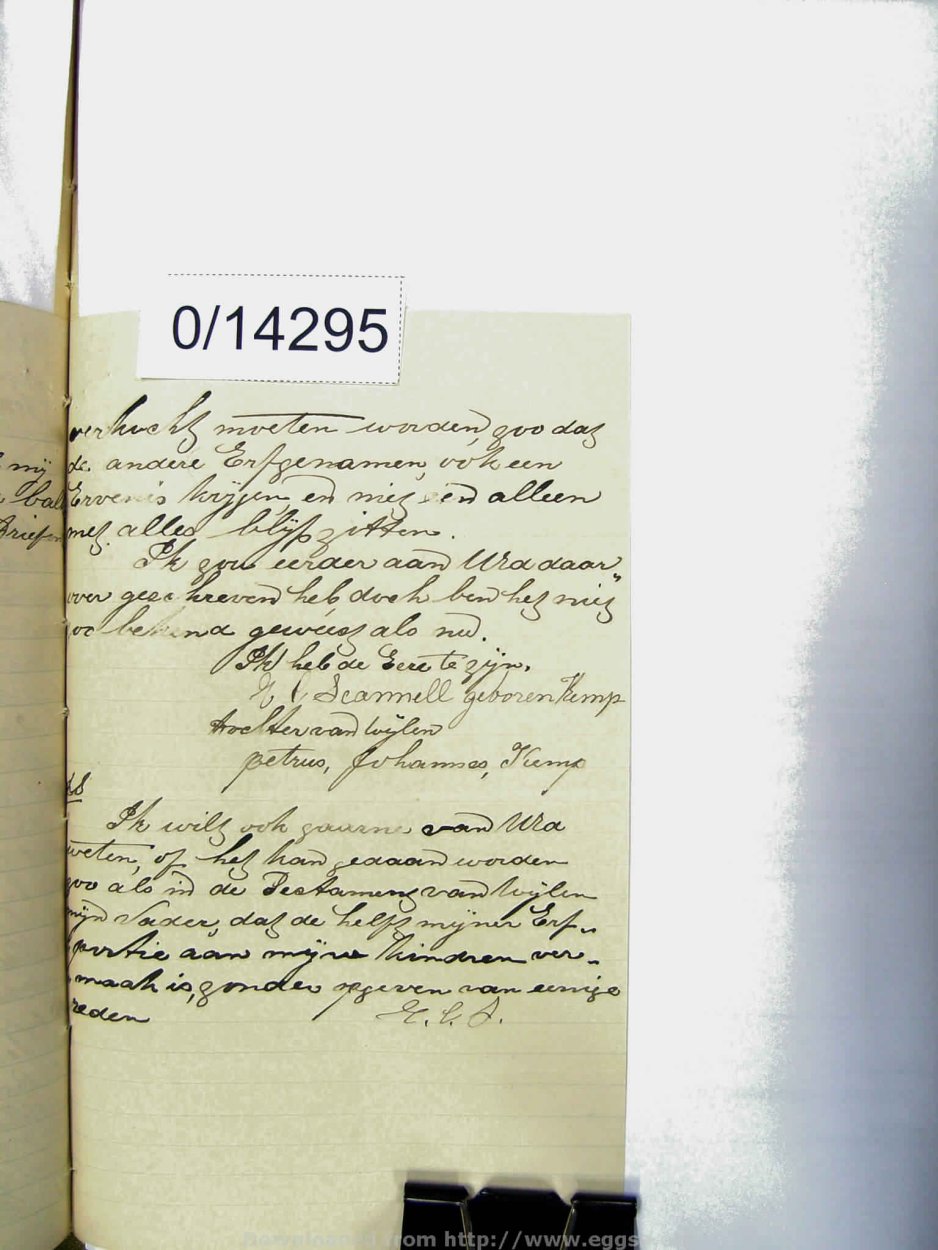 0/14295
verkocht moeten worden, zoo dat
de andere Erfgenamen, ook een
Ervenis krijgen, en niet een alleen
met alles blijft zitten.
Ik zou eerder aan UEd daar
over geschreven heb, doch ben het niet
zoo bekend geweest als nu.
Ik heb de Eere te zijn.
E C Scannell geboren Kemp
dochter van wijlen
petrus, Johannes, Kemp
PS
Ik wilt ook gaarne van UEd
weten, of het kan gedaan worden
zoo als in de Testament van wijlen
mijn Vader, dat de helft mijner Erf„
portie aan mijne kindren ver„
maak is, zonder opgeven van eenige
reden E. C. S.
mij
bal
Brief
from http://www.eggs